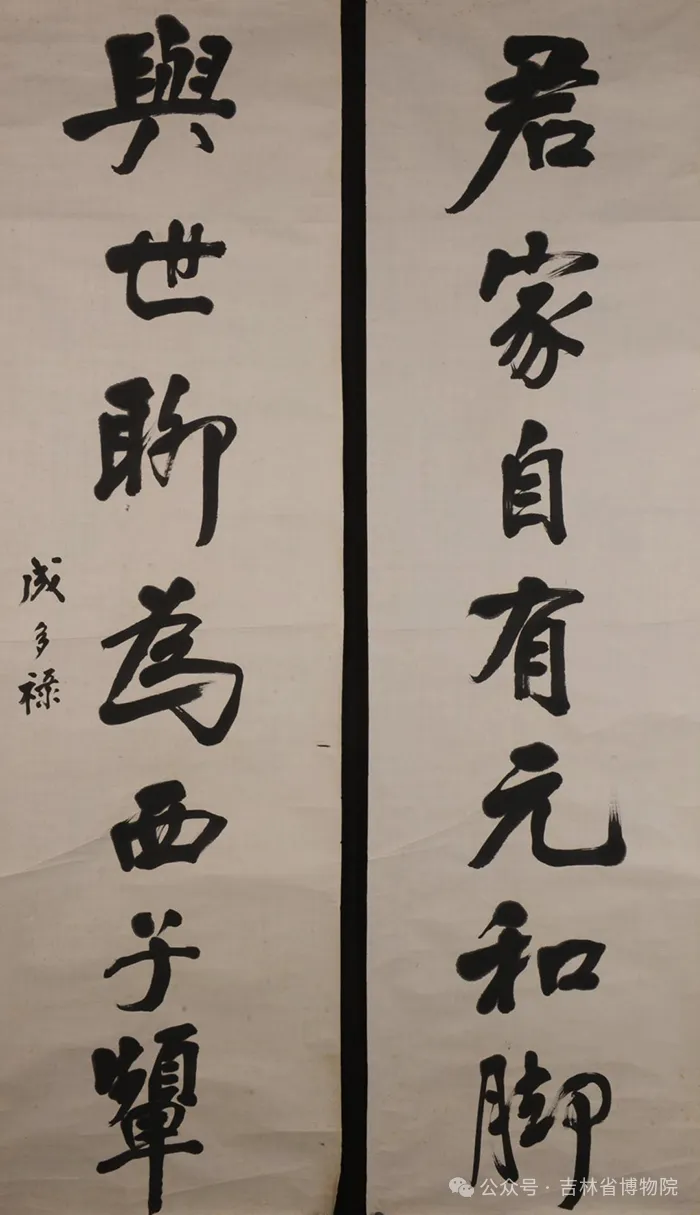 君家自有元和脚
與世聊為西子顰
成多祿
公众号 · 吉林省博物院